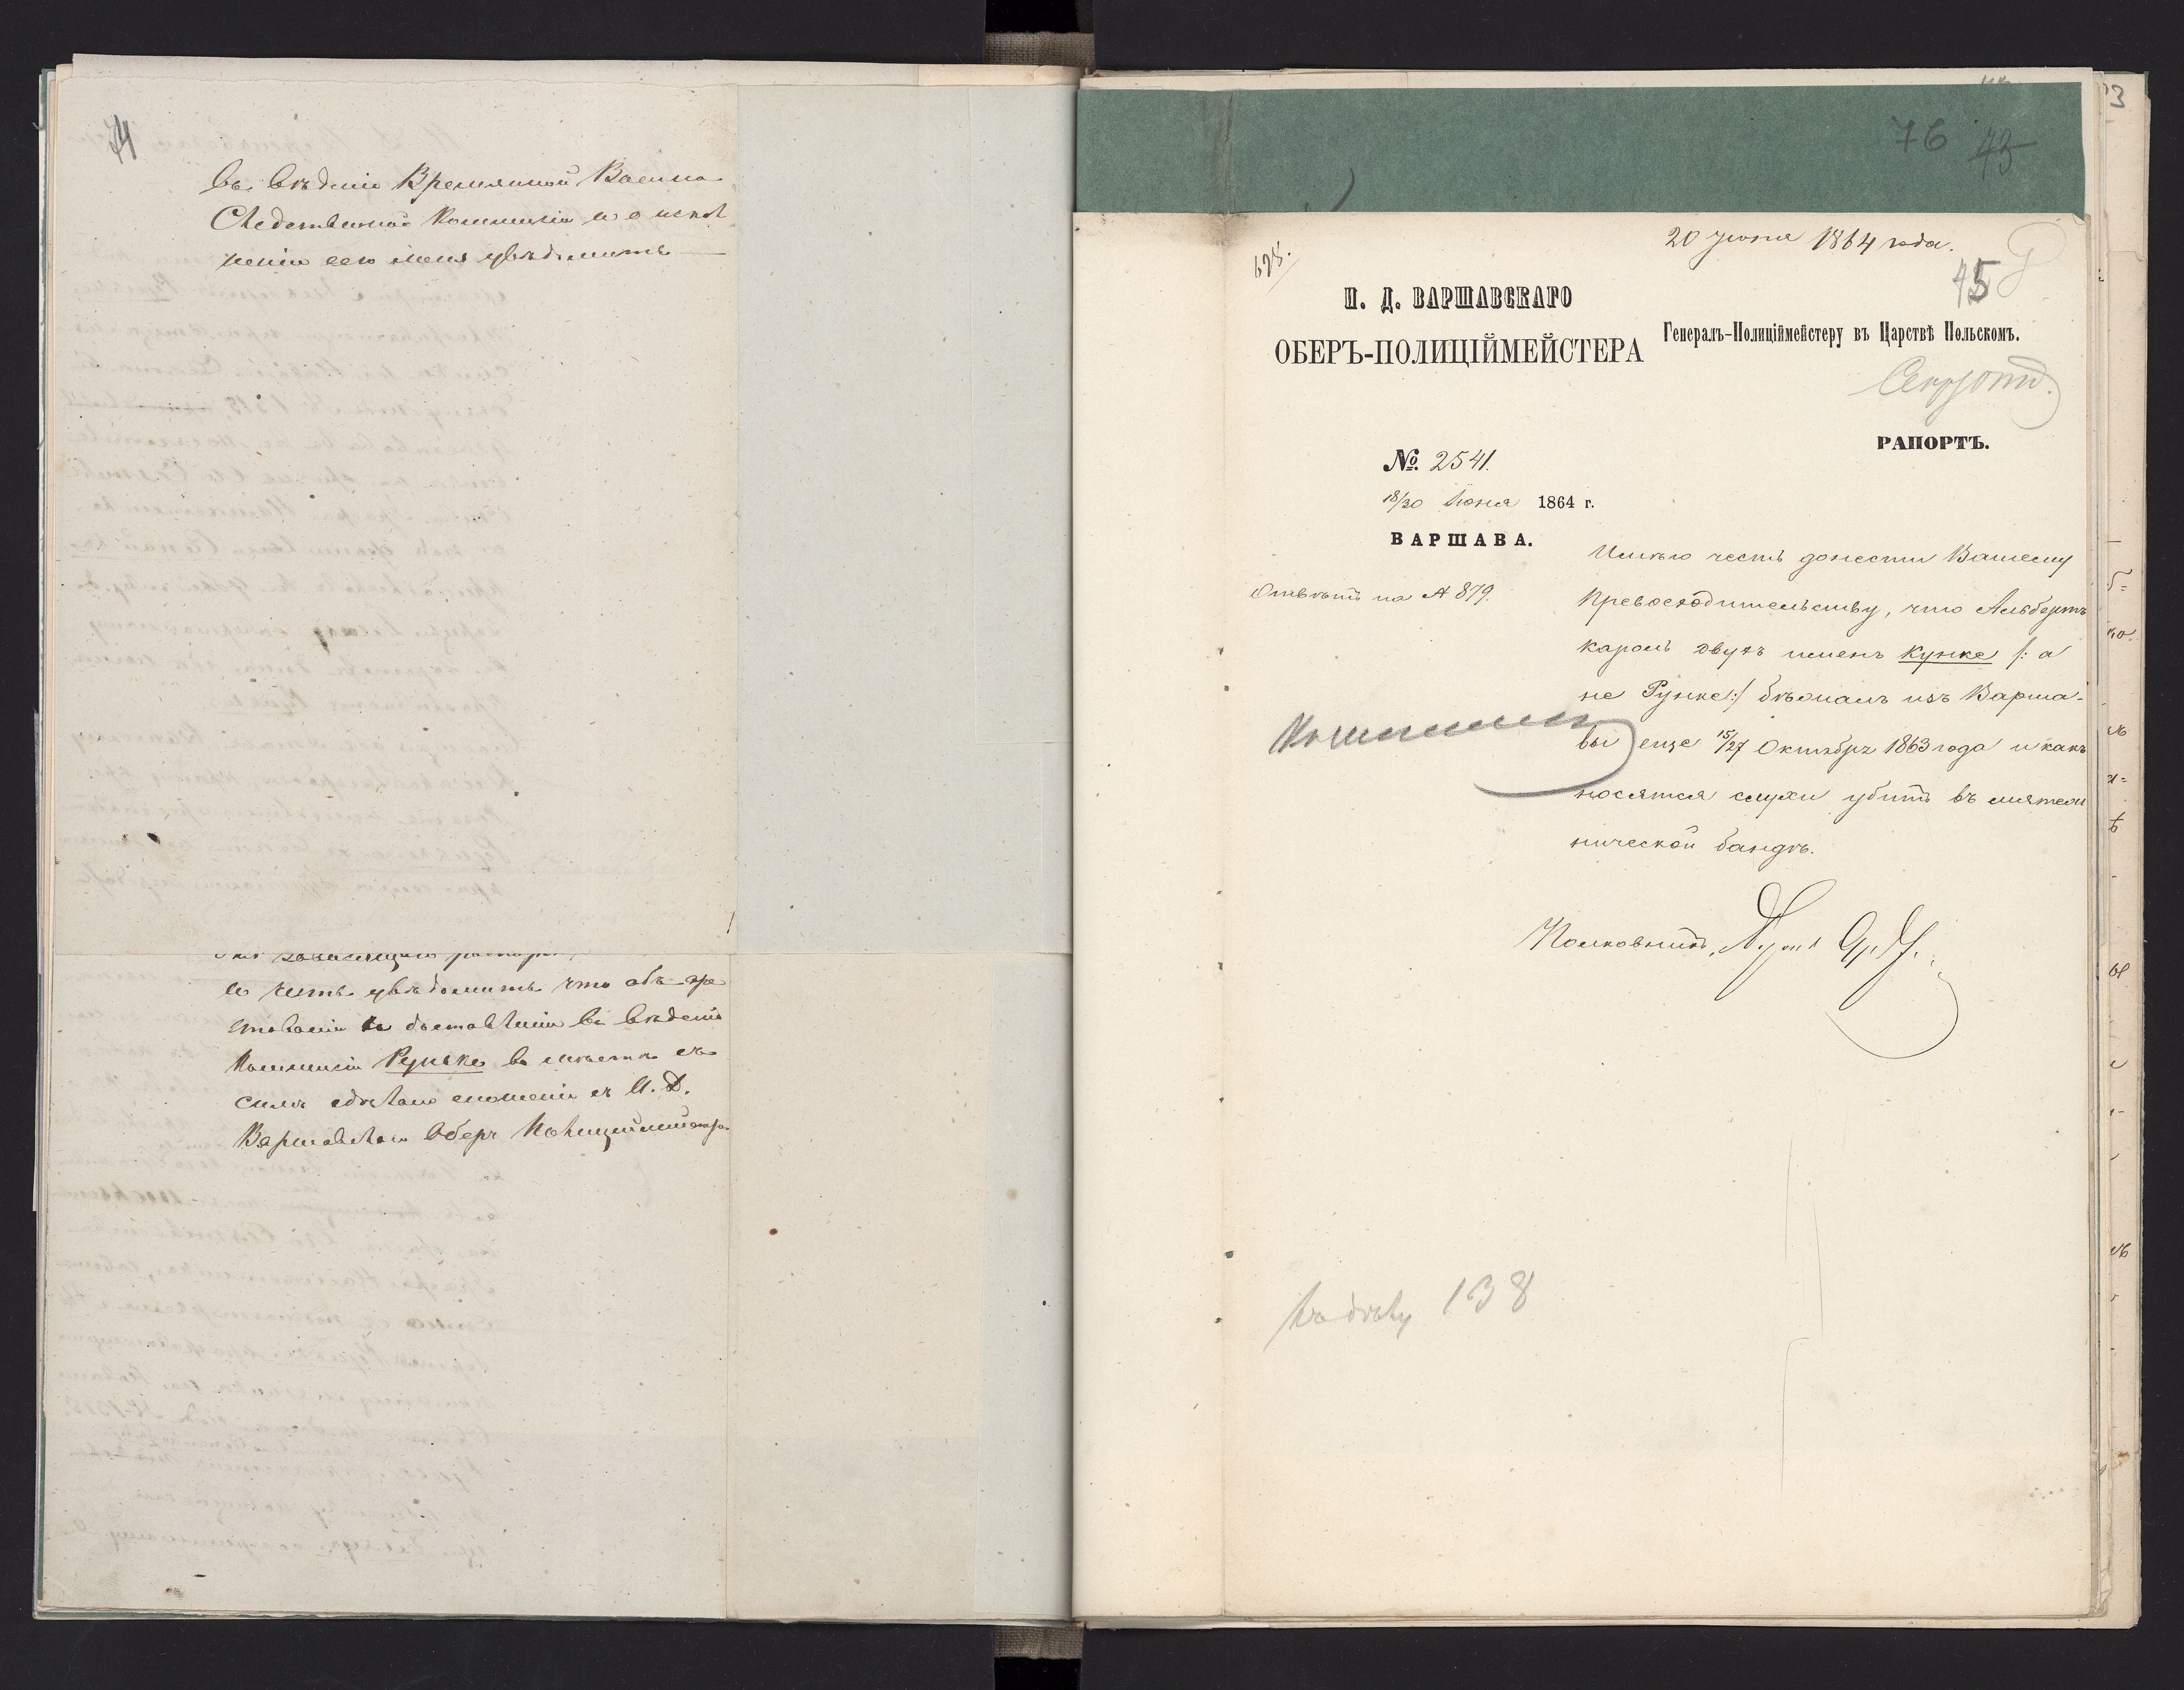 74
въ вѣденіе Временной Военно
Слѣдственной Коммисіи и о испол
неніи сего меня увѣдомить
и честь увѣдомить что объ аре
стованіи и доставленіи въ вѣденіе
Коммисіи Рунке въ мѣстѣ съ
симъ сдѣлано сношеніе съ И. Д.
Варшавскаго Оберъ Полицiймейстера
76 43
20 Іюня 1864 года.
45
И. Д. ВАРШАВСКАГО
ОБЕРЪ-ПОЛИЦІЙМЕЙСТЕРА
Генералъ-Полиціймейстеру въ Царствѣ Польскомъ.
РАПОРТЪ.
№. 2541.
18/30 Іюня 1864 г.
ВАРШАВА.
Отвѣтъ на № 879.
Имѣю честь донести Вашему
Превосходительству, что Альбертъ
Кароль двухъ именъ Кунке /: а
не Рунке:/ бѣжалъ изъ Варша-
вы еще 15/27 Октября 1863 года и какъ
носятся слухи убитъ въ мятеж
нической бандѣ.
Полковникъ,
Къ дѣлу 138